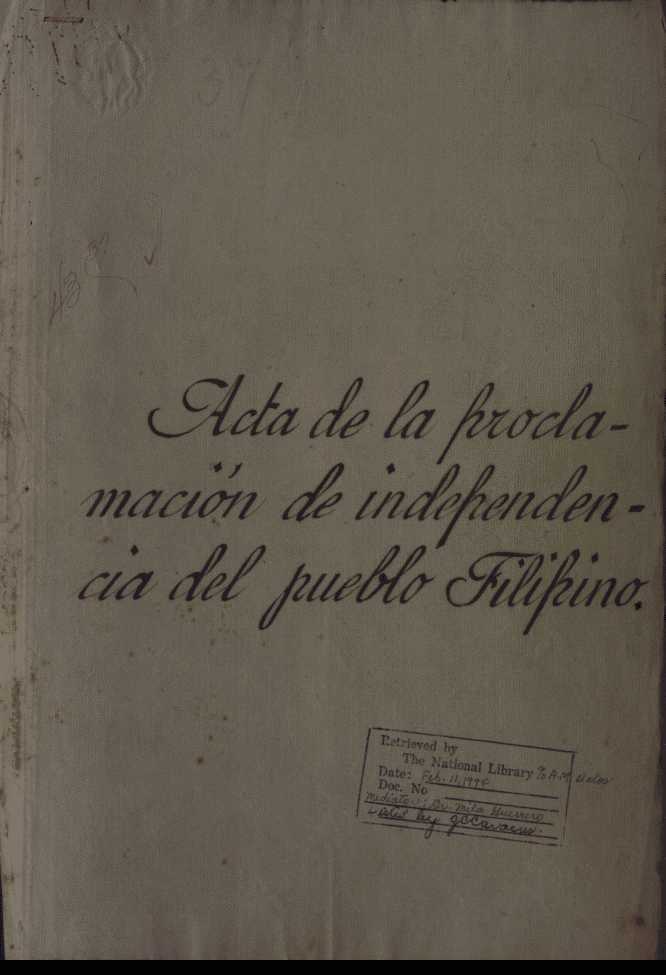 37
43
Acta de la procla-
mación de independen-
cia del pueblo Filipino.
Retrieved by
The National Library
Date: Feb. 11, 1994
Doc. No
Dr. Mila Guerrero
by